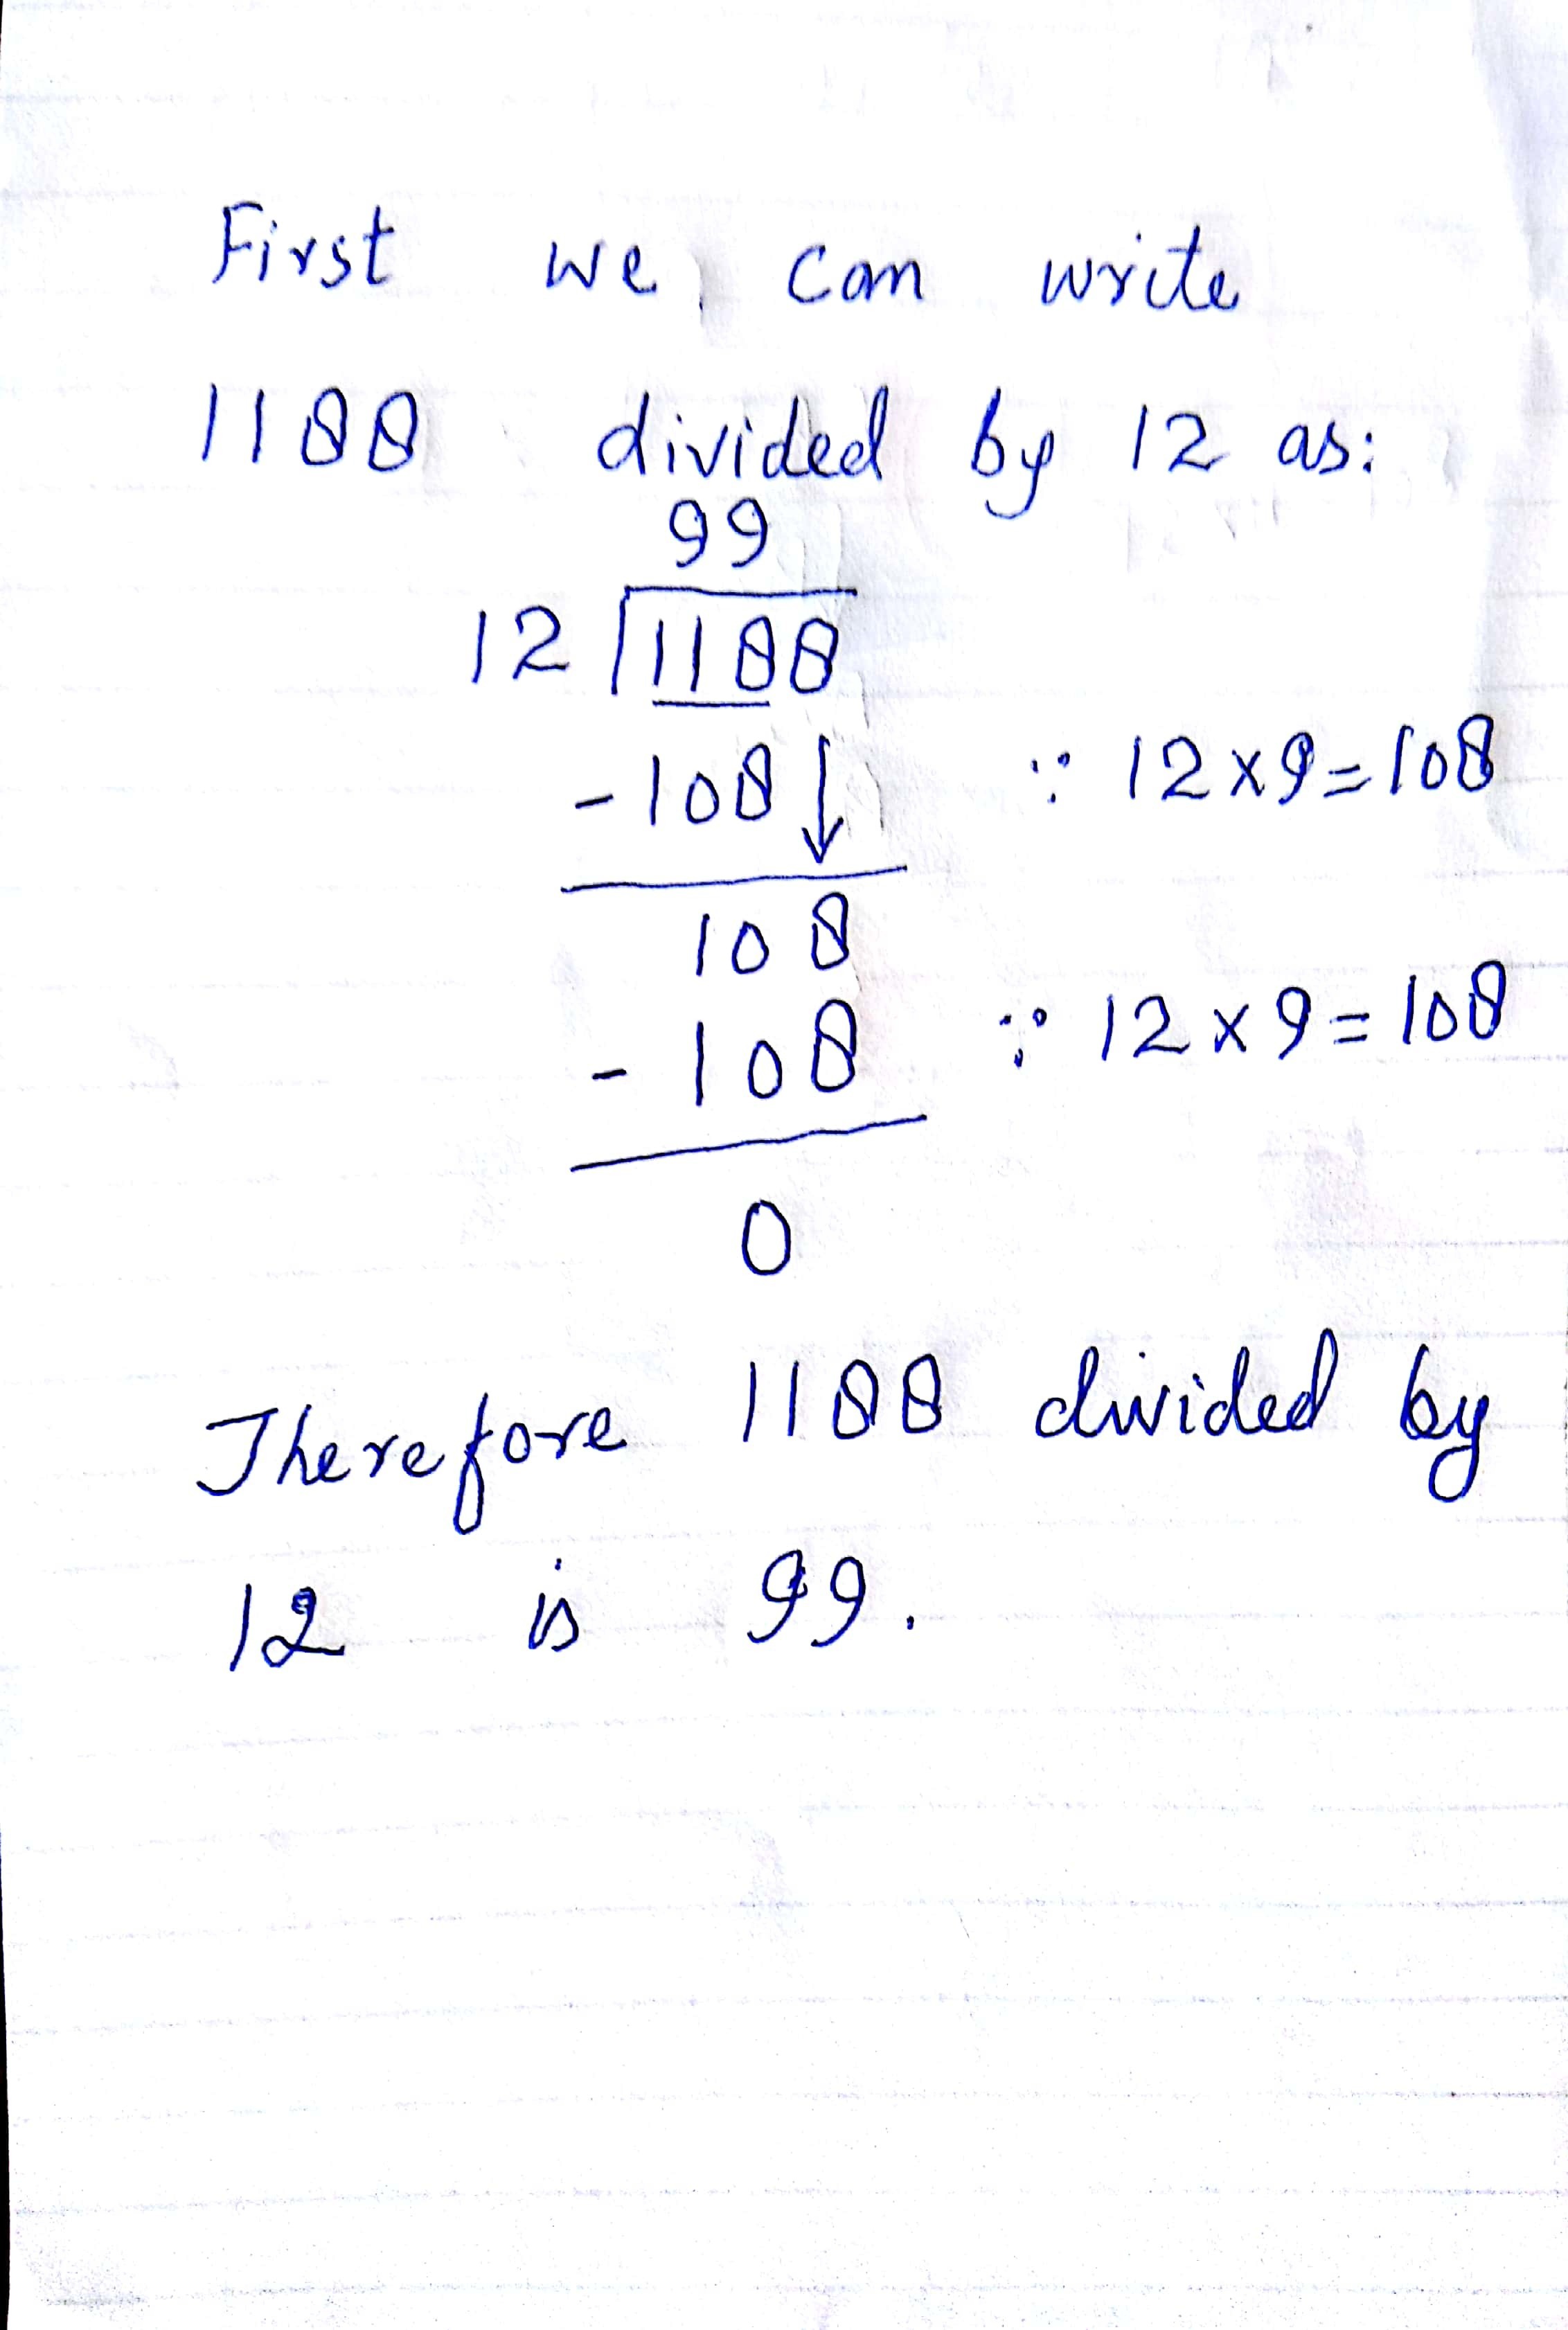 First we can write
1188 divided by 12 as:
99
12 1188
-108 ↓ ∵ 12 x 9 = 108
108
-108 ∵ 12 x 9 = 108
0
Therefore 1188 divided by
12 is 99.